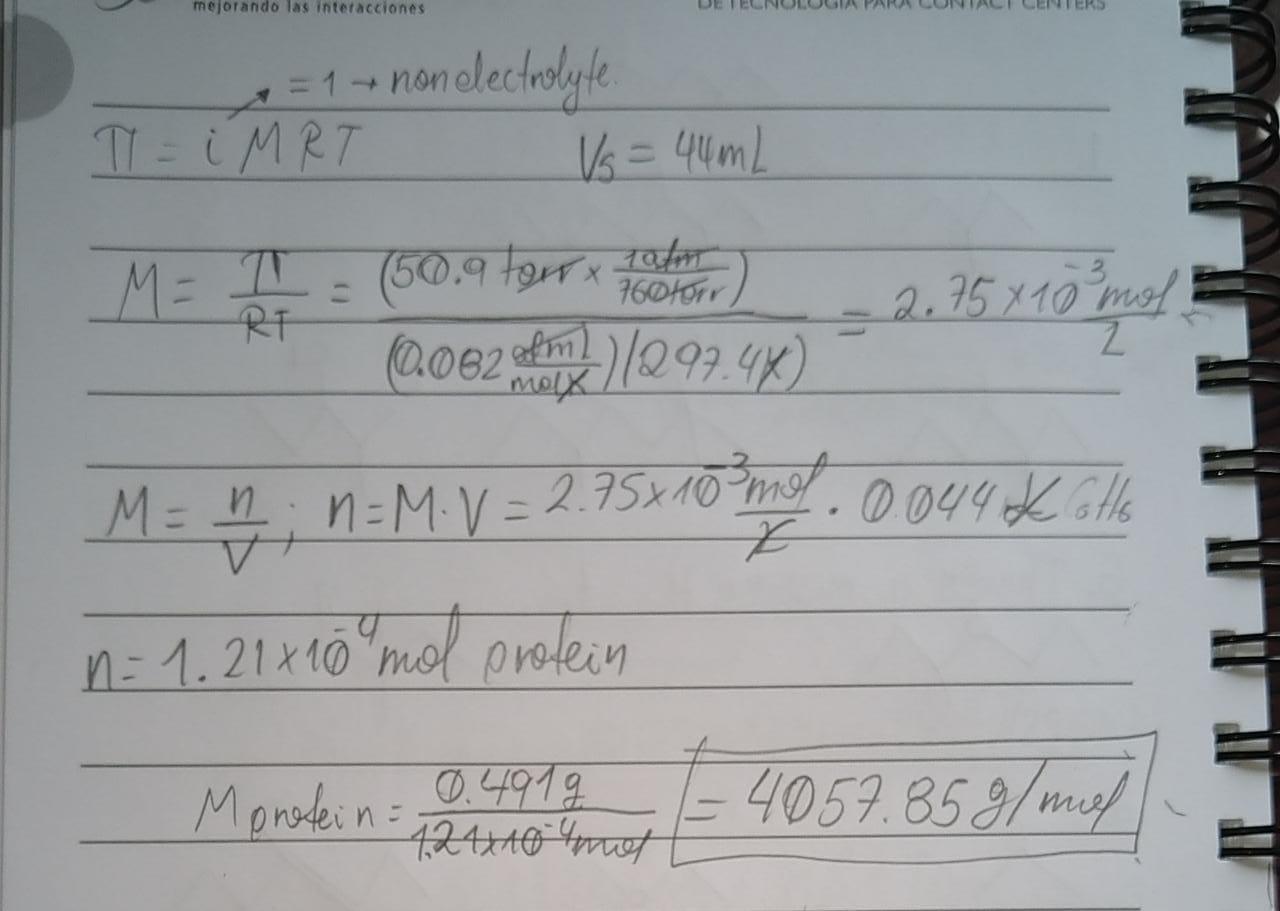 mejorando las interacciones
DE TECNOLOGÍA PARA CONTACT CENTERS
= 1 → nonelectrolyte.
Π = i M R T Vs = 44mL
M = Π/RT = (50.9 torr × 1atm/760torr)/(0.082 atml/molK)(297.4K) = 2.75 × 10⁻³ mol/l
M = n/V ; n = M·V = 2.75 × 10⁻³ mol/L · 0.044 L C6H6
n = 1.21 × 10⁻⁴ mol protein
M protein = 0.491g/1.21×10⁻⁴mol = 4057.85 g/mol